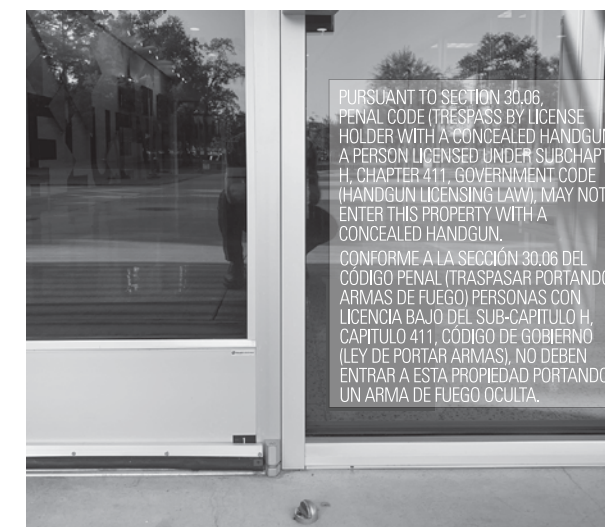 PURSUANT TO SECTION 30.06,
PENAL CODE (TRESPASS BY LICENSE
HOLDER WITH A CONCEALED HANDGUN
A PERSON LICENSED UNDER SUBCHAPT
H, CHAPTER 411, GOVERNMENT CODE
(HANDGUN LICENSING LAW), MAY NOT
ENTER THIS PROPERTY WITH A
CONCEALED HANDGUN.
CONFORME A LA SECCIÓN 30.06 DEL
CÓDIGO PENAL (TRASPASAR PORTANDO
ARMAS DE FUEGO) PERSONAS CON
LICENCIA BAJO DEL SUB-CAPITULO H,
CAPITULO 411, CÓDIGO DE GOBIERNO
(LEY DE PORTAR ARMAS), NO DEBEN
ENTRAR A ESTA PROPIEDAD PORTANDO
UN ARMA DE FUEGO OCULTA.
1